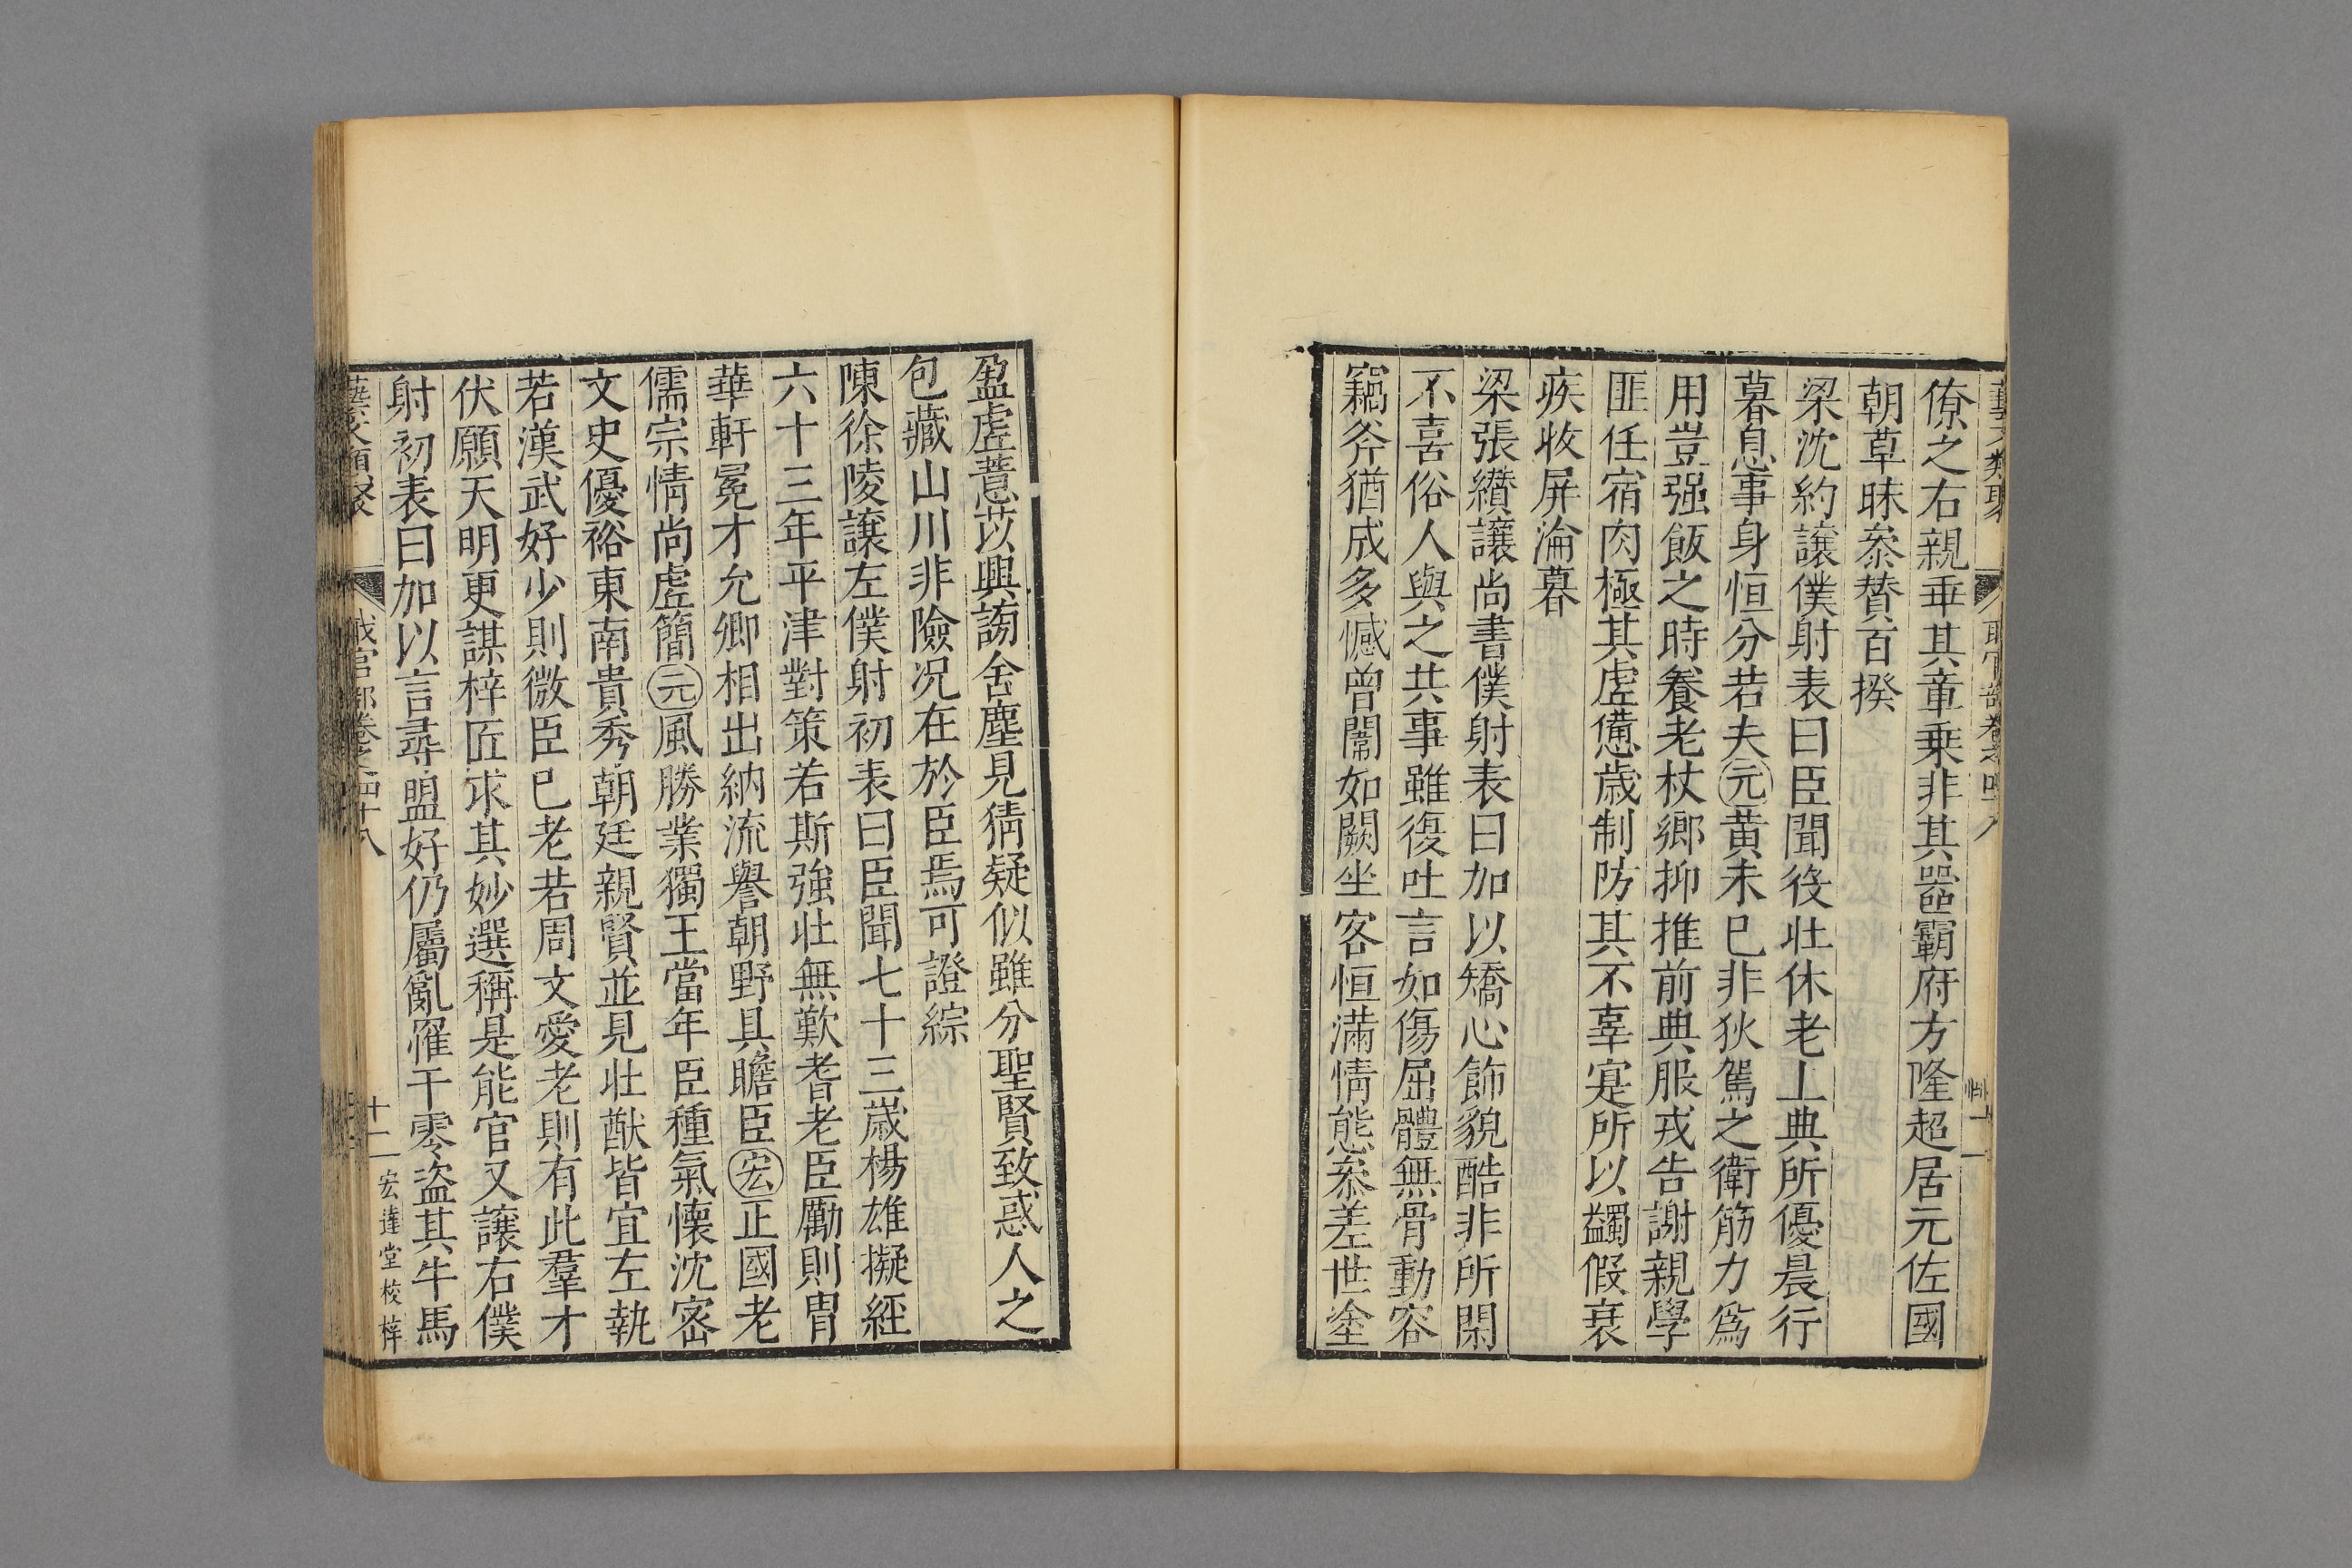 藝文類聚 職官部卷之四十八
僚之右親垂其童乗非其噐霸府方隆超居元佐國
朝草昧叅賛百揆
梁沈約讓僕射表曰臣聞役壮休老上典所優晨行
暮息事身恒分若夫元黄未巳非狄駕之衛筋力爲
用豈强飯之時養老杖鄉抑推前典服戎告謝親學
匪任宿肉極其虗憊歳制防其不辜寔所以蠲假衰
疾收屏淪暮
梁張纘讓尚書僕射表曰加以矯心飾貌酷非所閑
不喜俗人與之共事雖復吐言如傷屈體無骨動容
竊斧猶成多憾曾閽如闕坐客恒滿情態叅差世塗
盈虗薏苡興謗舍塵見猜疑似雖分聖賢致惑人之
包藏山川非險况在於臣焉可證綜
陳徐陵讓左僕射初表曰臣聞七十三歳楊雄擬經
六十三年平津對策若斯強壮無歎耆老臣勵則胄
華軒冕才允卿相出納流譽朝野具瞻臣宏正國老
儒宗情尚虗簡元風勝業獨王當年臣種氣懐沈宻
文史優裕東南貴秀朝廷親賢並見壮猷皆宜左執
若漢武好少則微臣巳老若周文愛老則有此羣才
伏願天明更謀梓匠求其妙選稱是能官又讓右僕
射初表曰加以言尋盟好仍屬亂罹干零盗其牛馬
藝文類聚 職官部卷之四十八 十二 宏達堂校梓